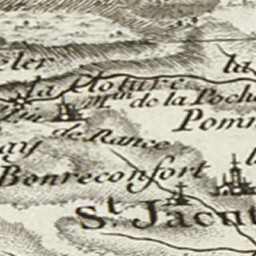 la Cloture
la
M.in de la Poche
Pomm
de Rance
ay
Bonreconfort
St. Jacut